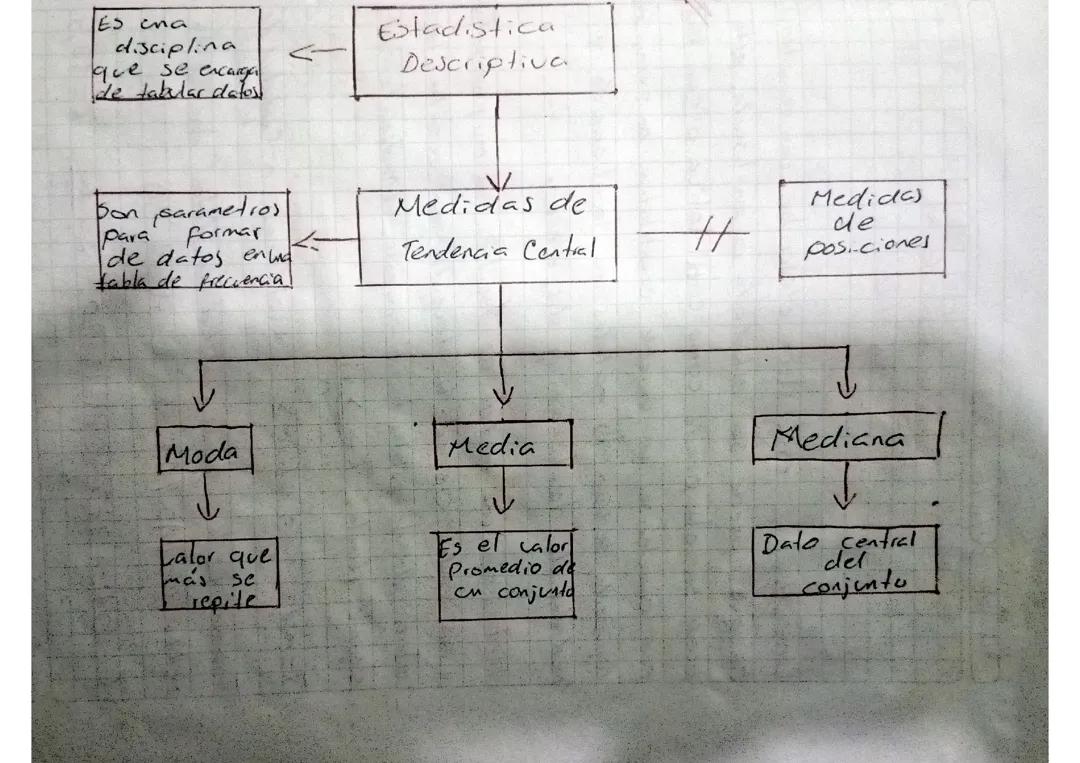 Es una
disciplina
que se encarga
de tabular datos
Estadistica
Descriptiva
Son parametros
para formar
de datos en una
tabla de frecuencia
Medidas de
Tendencia Central
Medidas
de
posiciones
Moda
Media
Mediana
Valor que
más se
repite
Es el valor
Promedio de
un conjunto
Dato central
del
conjunto